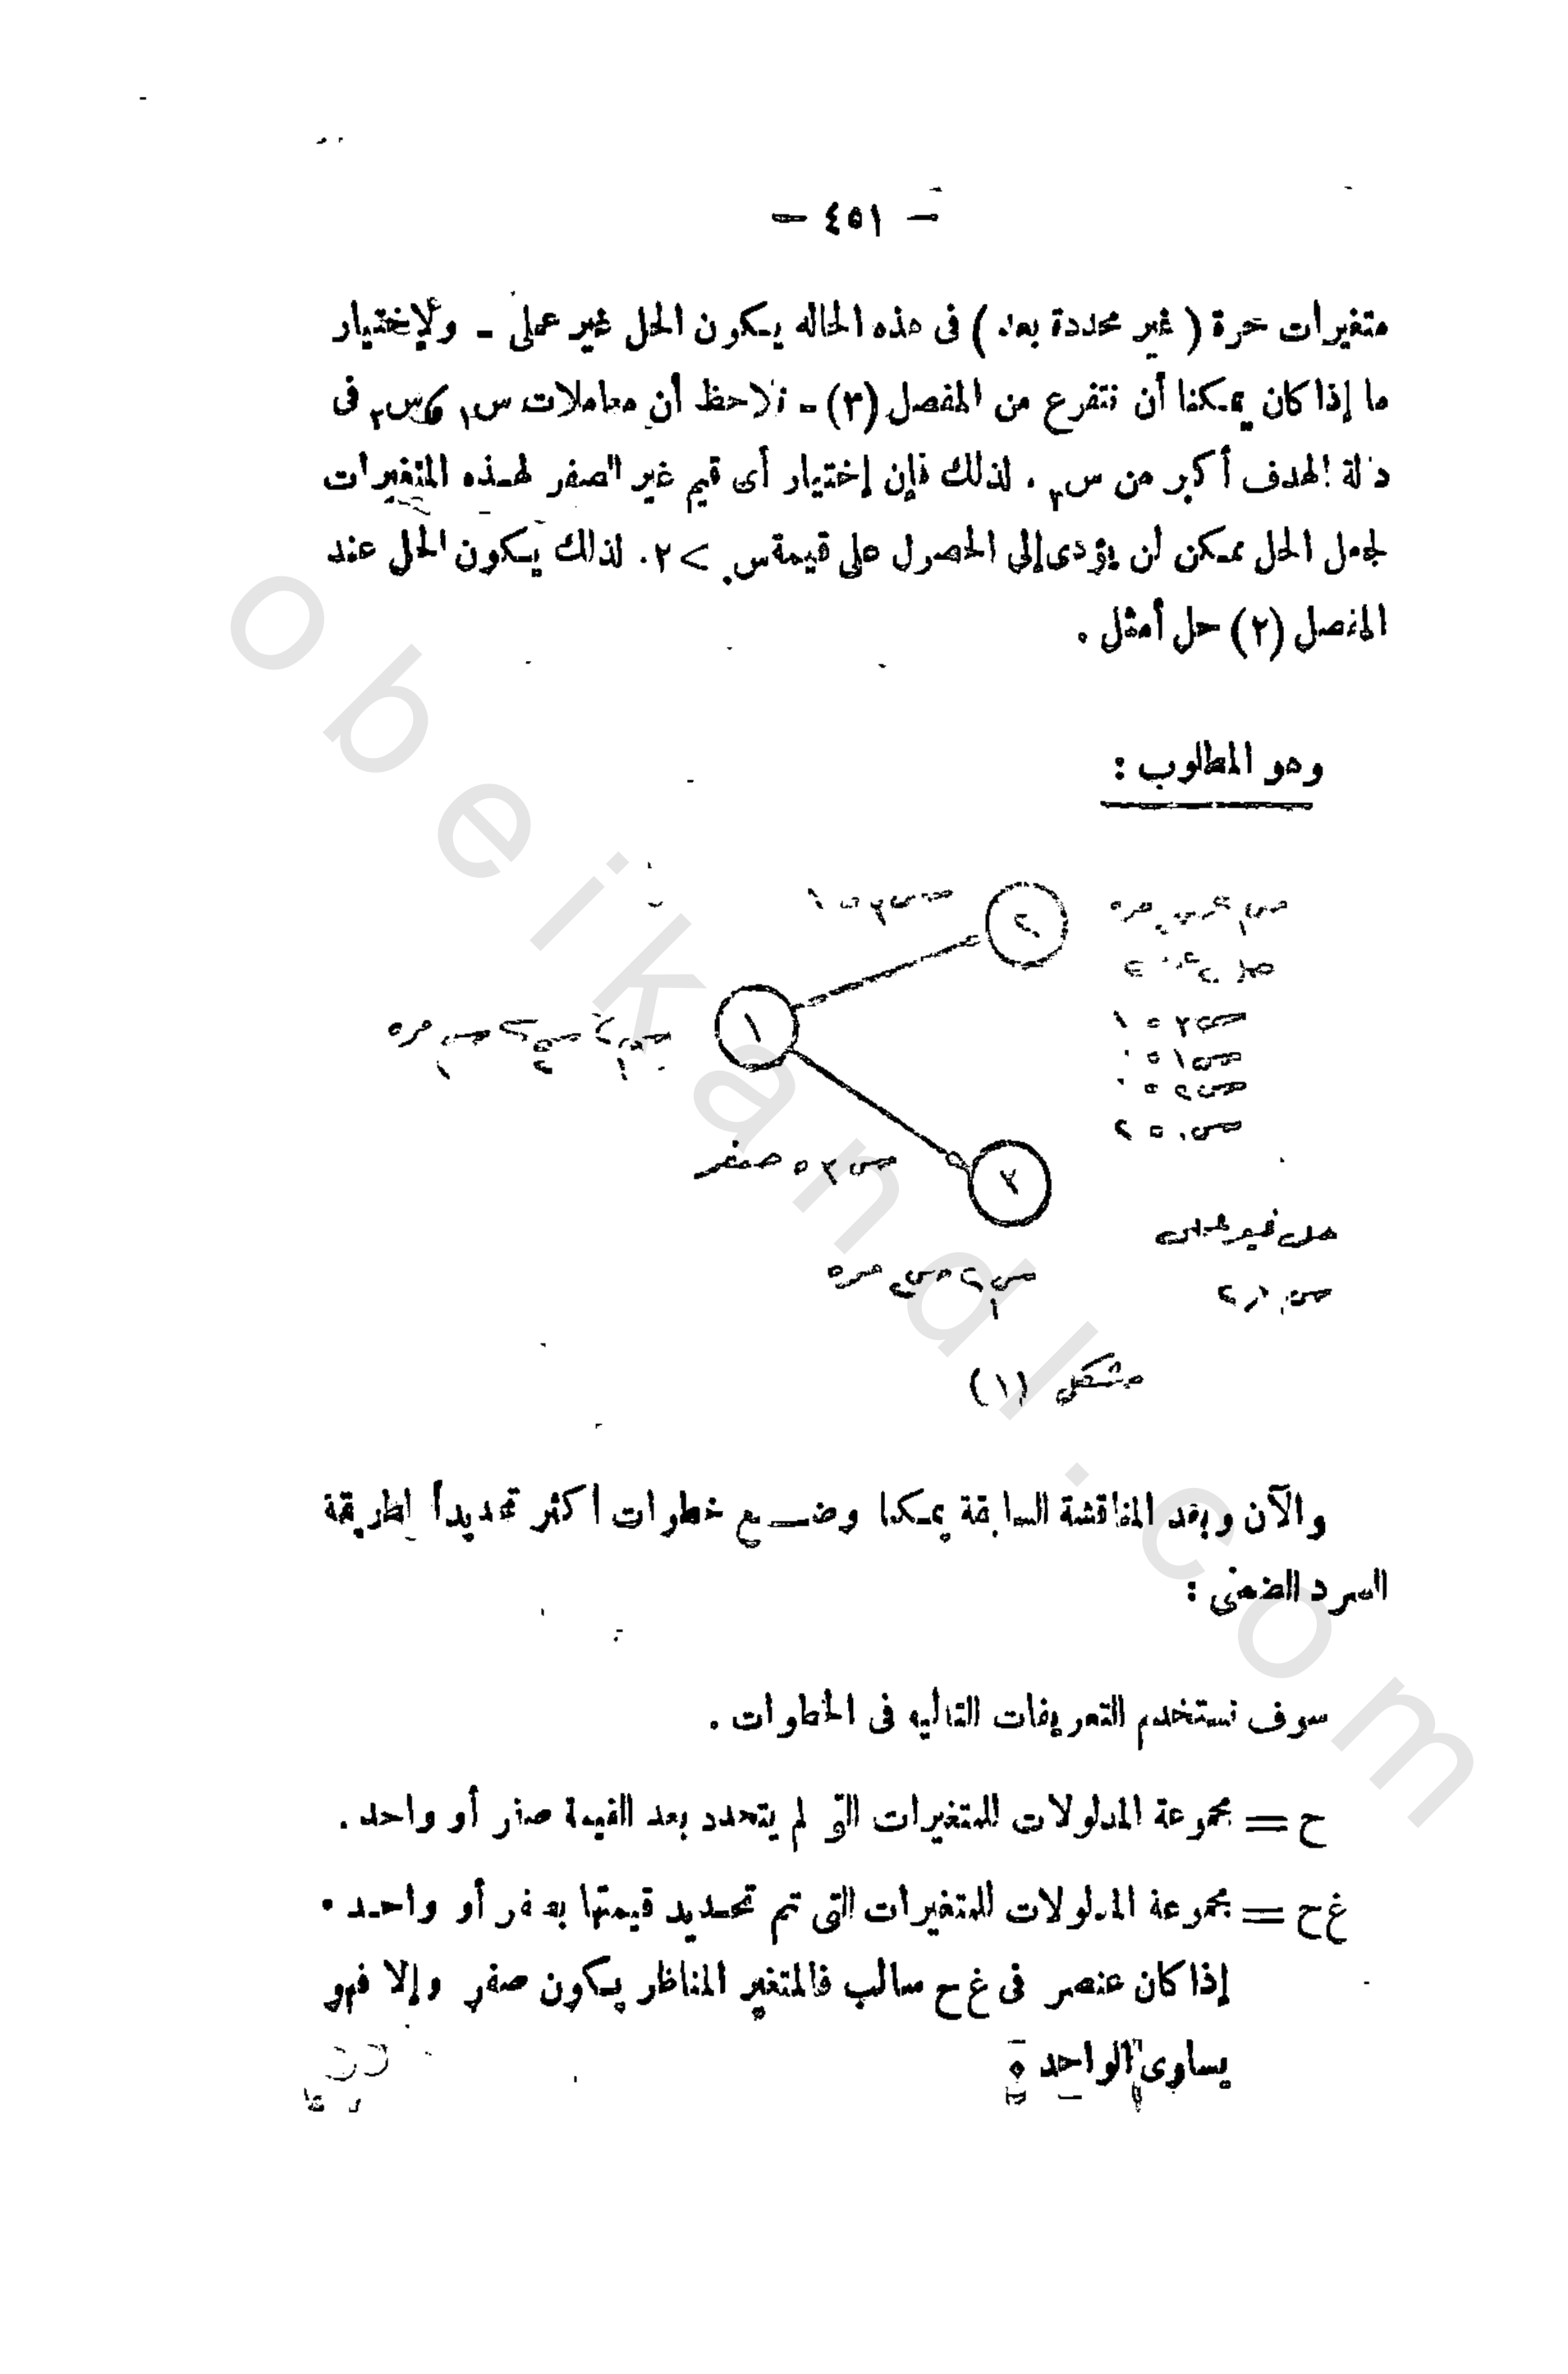 — ٤٥١ —
متغيرات حرة ( غير محددة بعد ) فى هذه الحاله يـكون الحل غير عملى ـ ولإختيار
ما إذا كان يمـكننا أن نتفرع من المفصل (٣) ـ نلاحظ أن معاملات س١ و س٢ فى
دالة الهدف أكبر من س٣ . لذلك فإن إختيار أى قيم غير الصفر لهـذه المتغيرات
لجعل الحل ممـكن لن يؤدى إلى الحصول على قيمة س. > ٢. لذلك يـكون الحل عند
المفصل (٢) حل أمثل .
وهو المطلوب :
س٣ = ١
٢
١
س٣ = ١
س١ = ٠
س٢ = ٠
س. = ٢
س٣ = صفر
٣
حل غير عملى
شكل (١)
والآن وبعد المناقشة السابقة يمـكنا وضـــع خطوات أكثر تحديداً لطريقة
السرد الضمنى :
سوف نستخدم التعريفات التاليه فى الخطوات .
ح = مجموعة المدلولات للمتغيرات التى لم يتحدد بعد القيمة صفر أو واحد .
غ ح = مجموعة المدلولات للمتغيرات التى تم تحـديد قيمتها بصفر أو واحـد .
إذا كان عنصر فى غ ح سالب فالمتغير المناظر يـكون صفر وإلا فهو
يساوى الواحد .
obeikandl.com